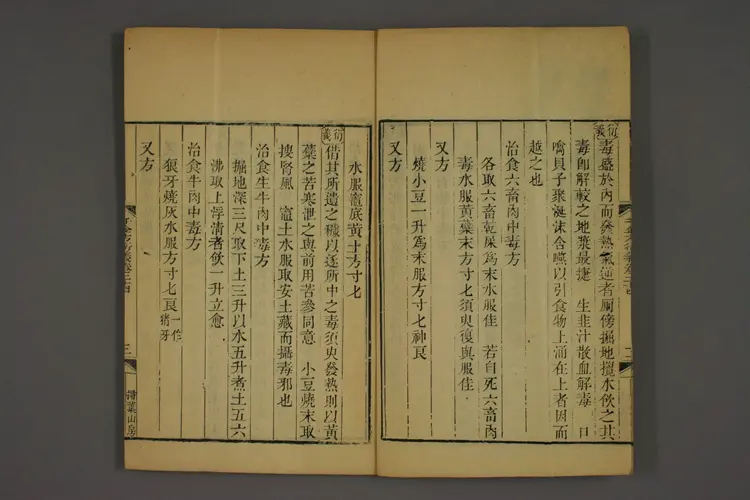 衍義
毒盛於內而發熱氣逆者厠傍掘地攪水飲之其
毒卽解較之地漿最捷 生韭汁散血解毒 口
噙貝子聚涎沫含嚥以引食物上涌在上者因而
越之也
治食六畜肉中毒方
各取六畜乾屎為末水服佳 若自死六畜肉
毒水服黃蘗末方寸匕須臾復與服佳
又方
燒小豆一升為末服方寸匕神良
又方
水服竈底黃土方寸匕
衍義
借其所遺之穢以逐所中之毒須臾發熱則以黃
蘗之苦寒泄之與前用苦參同意 小豆燒末取
搜腎風 竈土水服取安土藏而攝毒邪也
治食生牛肉中毒方
掘地深三尺取下土三升以水五升煮土五六
沸取上浮清者飲一升立愈
治食牛肉中毒方
狼牙燒灰水服方寸匕良 一作豬牙
又方
千金方衍義卷二十四
三
掃葉山房